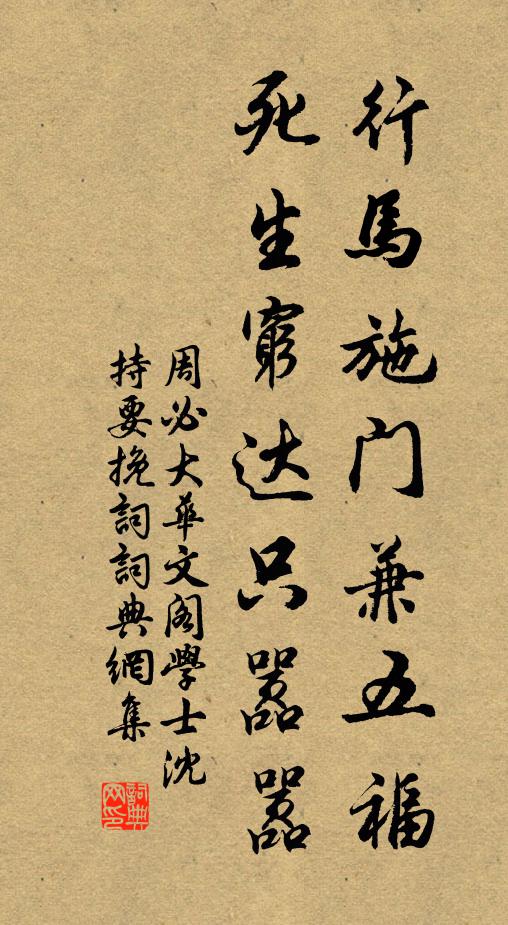 行馬施门兼五福
死生窮达只嚣嚣
周必大華文阁學士沈
持要挽詞詞典網集
詞典网印